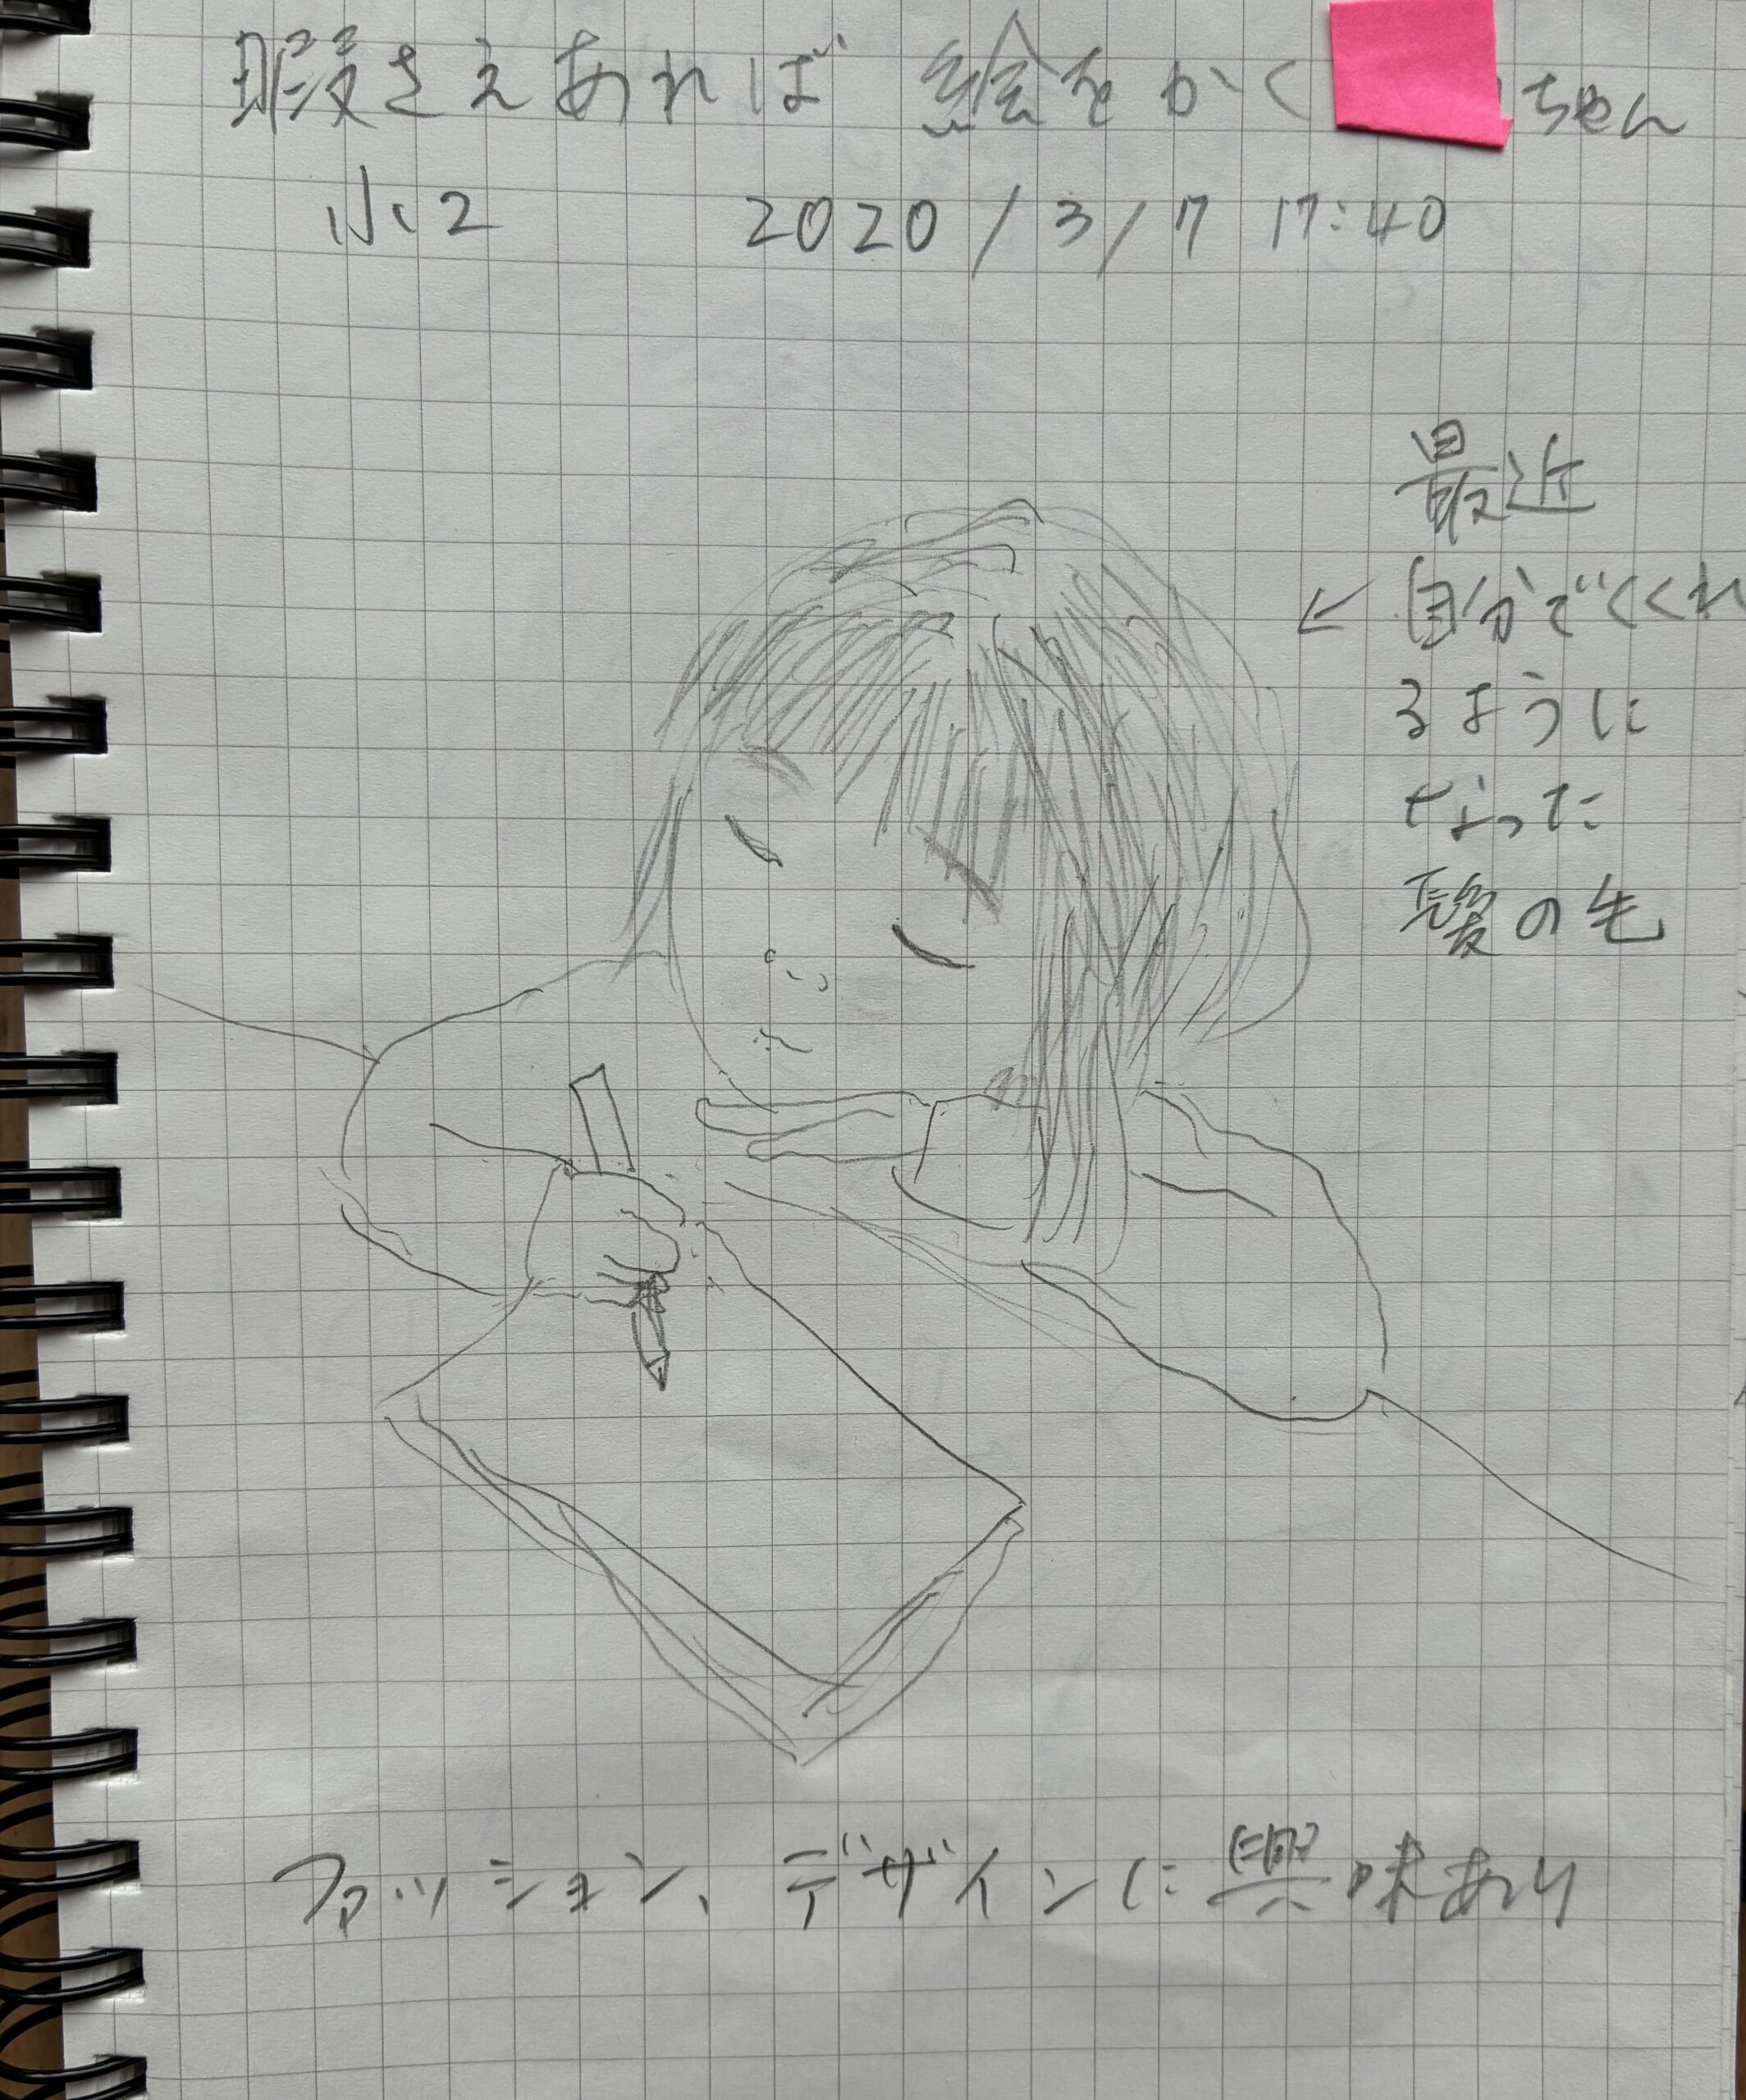 暇さえあれば 絵をかく ちゃん
小2 2020/3/7 17:40
最近
← 自分でくくれ
るように
なった
髪の毛
ファッション、デザインに興味あり